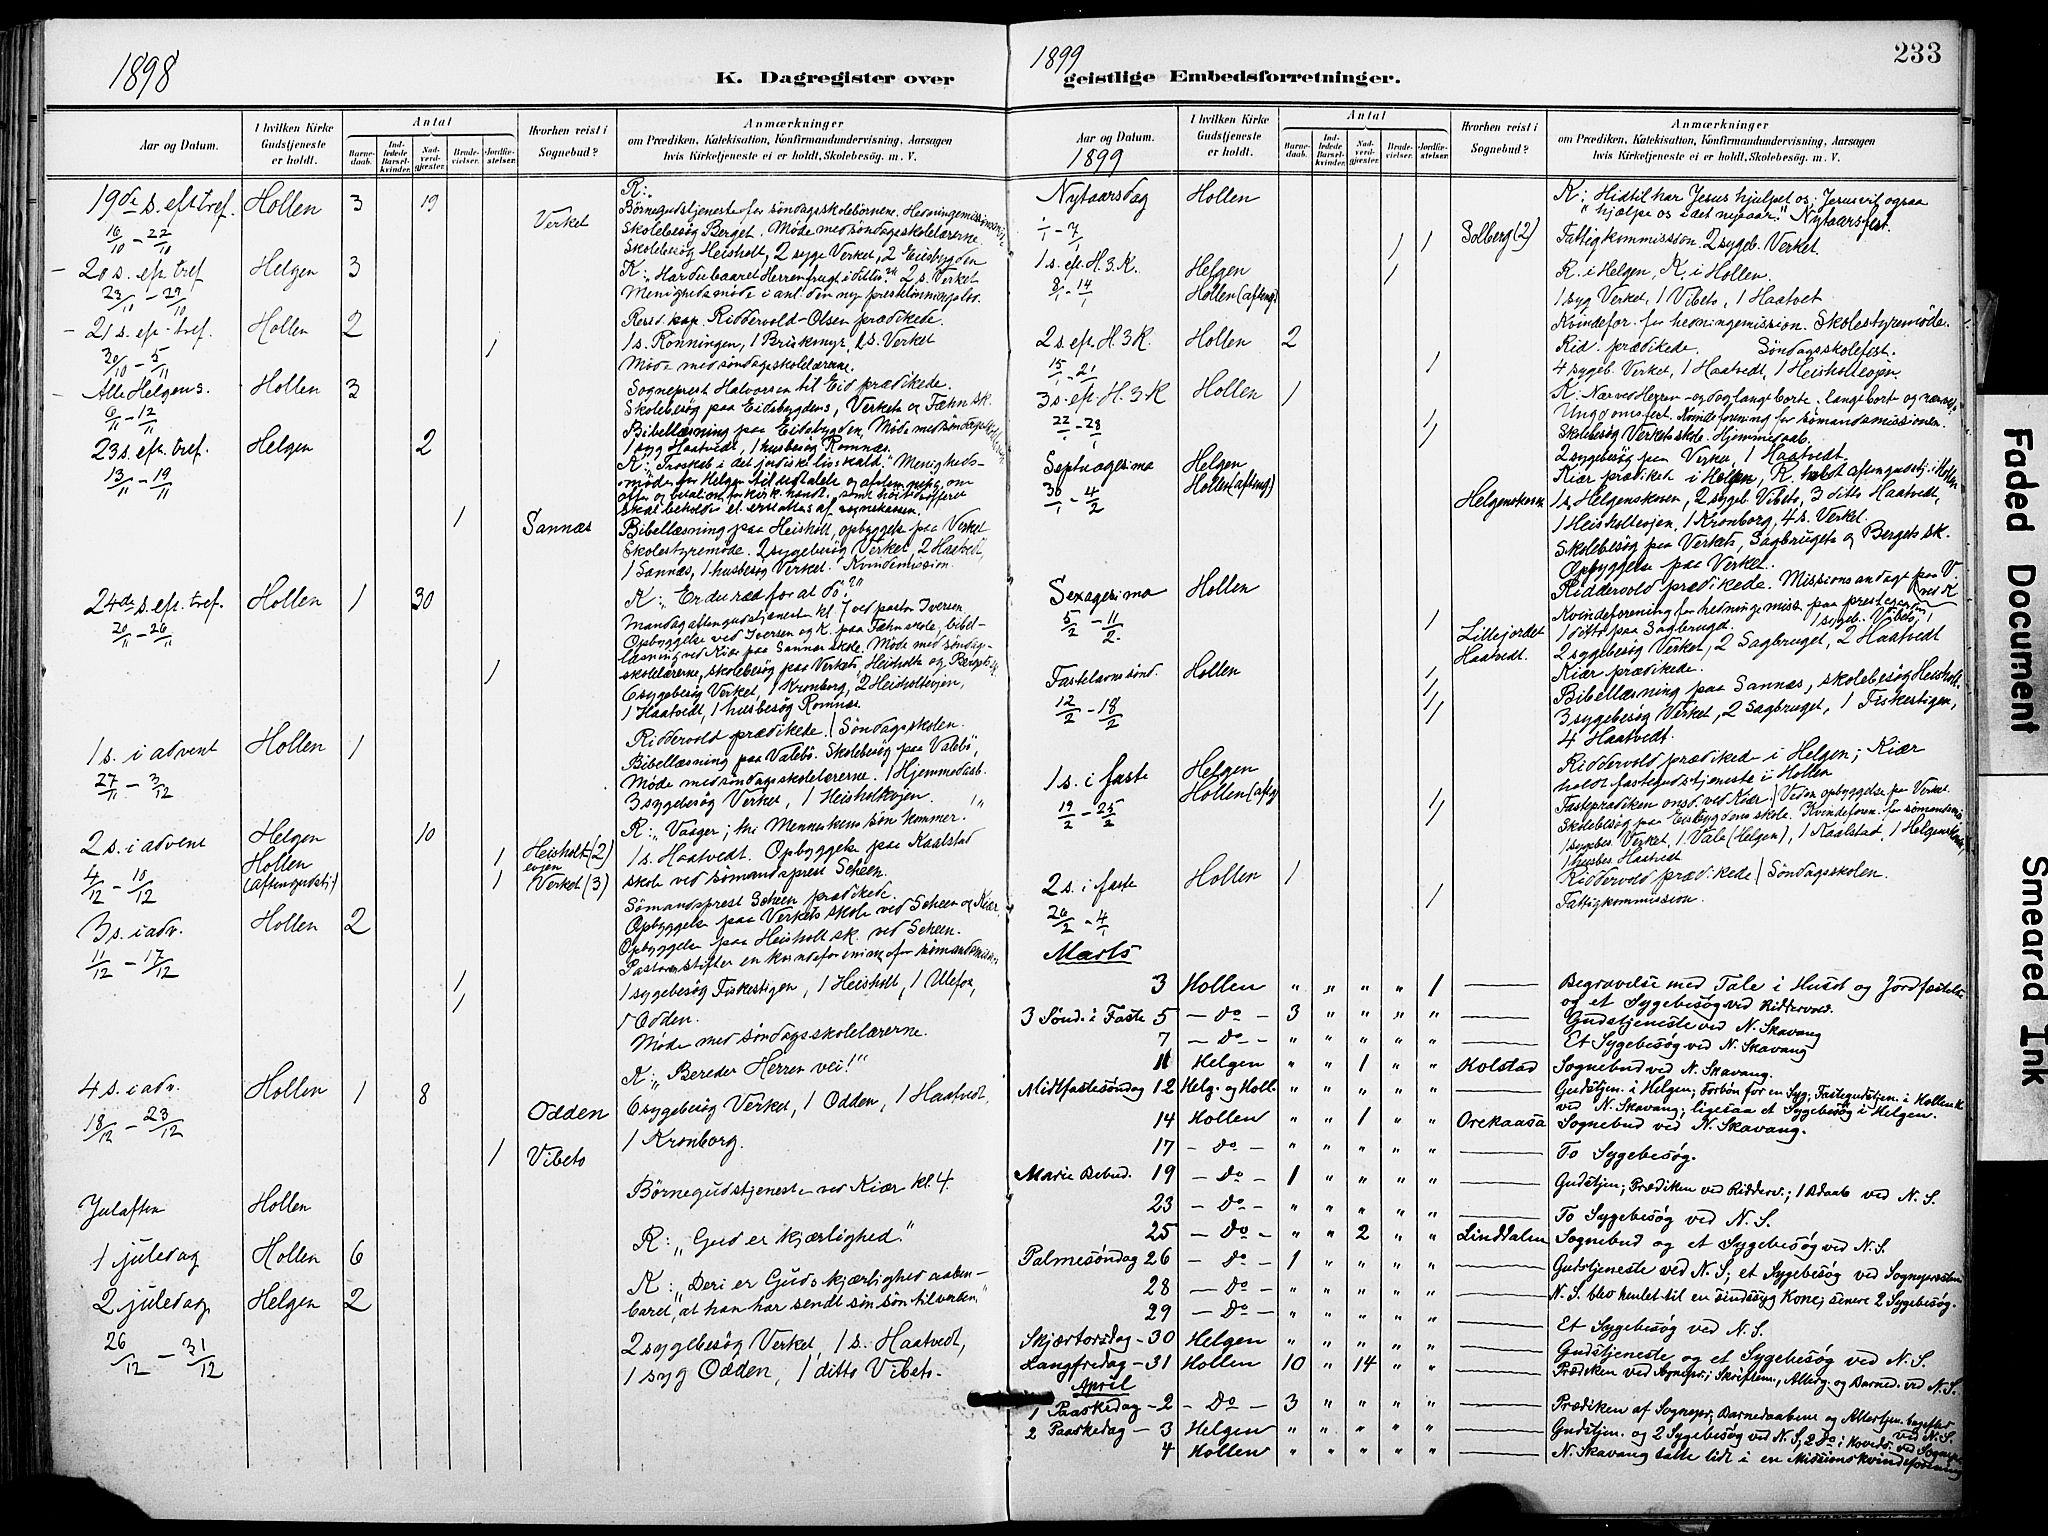 1898
K. Dagregister over
Aar og Datum.
I hvilken Kirke Gudstjeneste er holdt.
Antal
Barnedaab.
Indledede Barselkvinder.
Nadverdgjester.
Brudevielser.
Jordfæstelser.
Hvorhen reist i Sognebud?
Anmærkninger
om Prædiken, Katekisation, Konfirmandundervisning, Aarsagen
hvis Kirketjeneste ei er holdt, Skolebesøg. m. V.
19de s. eft tref. Hollen 3 19 R:
16/10 - 22/10 Verket Börnegudstjeneste for söndagsskolebörnene.
Skolebesög Berget. Möde med söndagsskolelærerne.
Skolebesög Heisholt, 2 syge Verket, 2 Eidsbygden
- 20 s. ef. tref Helgen 3 K: "Har du baaret Herren frugt i dette?" 2 s. Verket
23/10 - 29/10 Menighedsmöde i anl. den ny prestelönningslov.
- 21 s. ef. tref. Hollen 2 Resid. kap. Riddervold-Olsen prædikede.
30/10 - 5/11 1 1 s. Rönningen, 1 Briskmyr, 2 s. Verket
Möde med söndagsskolelærerne.
- Alle Helgens. Hollen 3 Sogneprest Halvorsen til Eid prædikede.
6/11 - 12/11 Skolebesög paa Eidsbygdens, Verkets og Fæhn sk.
Bibellæsning paa Eidsbygden, Möde med söndagsskolelærerne
1 syg Haatvedt, 1 husbesög Romnæs.
23 s. ef. tref. Helgen 2 K: "Troskab i det jordiske livskald." Menigheds-
13/11 - 19/11 möde for Helgen til udtalelse og afstemning om
1 Sannæs Bibellæsning paa Heisholt, opbyggelse paa Verket
Skolestyremöde. 2 sygebesög Verket, 2 Haatvedt,
1 Sannæs, 1 husbesög Verket. Kvindemission.
24de s. ef. tref. Hollen 1 30 K: "Er du ræd for at dö?"
20/11 - 26/11 Mandag aftengudstjenest kl. 7 ved pastor Iversen.
Opbyggelse ved Iversen og K. paa Fæhn skole, bibel-
læsning ved Kiær paa Sannæs skole. Möde med söndags-
1 skolelærerne, skolebesög paa Verkets, Heisholts og Bergets sk.
6 sygebesög Verket, 1 Kronborg, 2 Heisholtveien,
1 Haatvedt, 1 husbesög Romnæs.
1 s. i advent Hollen 1 Riddervold prædikede. / Söndagsskolen.
27/11 - 3/12 Bibellæsning paa Valebö. Skolebesög paa Valebö,
Möde med söndagsskolelærerne. 1 Hjemmedaab.
3 sygebesög Verket, 1 Heisholtveien.
2 s. i advent Helgen 10 R: "Vaager; thi Menneskens sön kommer."
Hollen (aftengudstj:) 1 Heisholtveien (2) 1 s. Haatvedt. Opbyggelse paa Kaalstad
4/12 - 10/12 1 Verket (3) skole ved sömandsprest Scheen.
3 s. i adv. Hollen 2 Sömandsprest Scheen prædikede.
11/12 - 17/12 Opbyggelse paa Verkets skole ved Scheen og Kiær.
Opbyggelse paa Heisholt sk. ved Scheen.
Pastoren stifter en kvindeforening for sömandsmission
1 1 sygebesög Fiskestigen, 1 Heisholt, 1 Ulefos,
1 1 Odden.
Möde med söndagsskolelærerne.
4 s. i adv. Hollen 1 8 K: "Bereder Herren vei!"
18/12 - 23/12 Odden 6 sygebesög Verket, 1 Odden, 1 Haatvedt,
1 Vibeto 1 Kronborg.
Julaften Hollen Börnegudstjeneste ved Kiær kl. 4.
1 juledag Hollen 6 R: "Gud er kjærlighed."
2 juledag Helgen 2 K: "Deri er Guds kjærlighed aaben-
baret, at han har sendt sin sön til verden."
26/12 - 31/12 2 sygebesög Verket, 1 s. Haatvedt,
1 syg Odden, 1 ditto Vibeto.
1899
geistlige Embedsforretninger.
233
Aar og Datum.
1899
I hvilken Kirke Gudstjeneste er holdt.
Antal
Barnedaab.
Indledede Barselkvinder.
Nadverdgjester.
Brudevielser.
Jordfæstelser.
Hvorhen reist i Sognebud?
Anmærkninger
om Prædiken, Katekisation, Konfirmandundervisning, Aarsagen
hvis Kirketjeneste ei er holdt, Skolebesøg. m. V.
Nytaarsdag Hollen K: "Hidtil har Jesus hjulpet os; Jesus vil ogsaa
hjælpe os i det nytaar." Nytaarsfest.
1/1 - 7/1 1 1 Solberg (2) Fattigkommission. 2 sygeb. Verket.
1 s. ef. H. 3. K. Helgen 1 R. i Helgen, K. i Hollen.
8/1 - 14/1 Hollen (aftng) 1 syg Verket, 1 Vibeto, 1 Haatvet
Kvindefor. for hedningemission. Skolestyremöde.
2 s. ef. H. 3 K. Hollen 2 Rid. prædikede. Söndagsskolefest.
15/1 - 21/1 1 4 sygeb. Verket, 1 Haatvedt, 1 Heisholtveien.
3 s. ef. H. 3 K Hollen 1 K: Nær ved Herren - og dog langt borte. langt borte og nær ved."
22/1 - 28/1 1 Ungdomsfest. Kvindeforening for sömandsmissionen.
1 Skolebesög Verkets skole. Hjemmedaab.
2 sygebesög paa Verket, 1 Haatvedt.
Septuagesima Helgen Kiær prædiket i Helgen, R. holdt aftengudstj. i Hollen
30/1 - 4/2 Hollen (aftng) Helgenskosen 1 s. Helgenskosen, 2 sygeb. Vibeto, 3 ditto Haatvedt,
1 Heisholtveien, 1 Kronborg, 4 s. Verket.
Skolebesög paa Verkets, Sagbrugets og Bergets sk.
Opbyggelse paa Verket.
Sexagesima Hollen Riddervold prædikede. Missionsandagt paa V ved K
5/2 - 11/2 1 Kvindeforening for hedningemiss. paa prestegaarden,
Lillejordet 1 ditto paa Sagbruget. 1 sygeb. Vibeto, 1
Haatvedt. 2 sygebesög Verket, 2 Sagbruget, 2 Haatvedt
Fastelavnssönd. Hollen 1 Kiær prædikede.
12/2 - 18/2 1 Bibellæsning paa Sannæs, skolebesög Heisholt.
1 3 sygebesög Verket, 2 Sagbruget, 1 Fiskestigen,
4 Haatvedt.
1 s. i faste Helgen Riddervold prædikede i Helgen; Kiær
Hollen (aftg) holdt fastegudstjeneste i Hollen
19/2 - 25/2 1 Fasteprædiken onsd. ved Kiær / Veden opbyggelse paa Verket.
1 Skolebesög paa Eidsbygdens skole. Kvindeforen. for sömandsmis
1 sygebes Verket, 1 Vale (Helgen), 1 Kaalstad, 1 Helgenskosen,
1 husbes Haatvedt
2 s. i faste Hollen 1 Riddervold prædikede / Söndagsskolen.
26/2 - 4/ 1 Fattigkommission.
Marts
3 Hollen " " " " 1 Begravelse med Tale i Huset og Jordfæstelse
og et Sygebesøg ved Riddervold.
3 Sønd. i Faste 5 - Do - 3 " " " " Gudstjeneste ved N. Skavang
7 - Do - " " " " " Et Sygebesøg ved N. Skavang
11 Helgen " " 1 " " Kolstad Sognebud ved N. Skavang.
Midtfastesøndag 12 Helg. og Holl. " " " " " Gudstjen. i Helgen; Forbøn for en Syg; Fastegudstjen. i Hollen K
ved N. Skavang; ligesaa et Sygebesøg i Helgen.
14 Hollen " " 1 " " Orekaasa Sognebud ved N. Skavang.
17 - Do - " " " " " To Sygebesøg.
Marie Bebud. 19 - Do - 1 " " " " Gudstjen; Prædiken ved Ridderv.; 1 Bdaab ved N. S.
23 - Do - " " " " " To Sygebesøg ved N. S.
25 - Do - " " 2 " " Linddalen Sognebud og et Sygebesøg ved N. S.
Palmesøndag 26 - Do - 1 " " " " Gudstjeneste ved N. S; et Sygebesøg ved Sognepresten
28 - Do - " " " " " N. S. blev hentet til en sindssyg Kone; senere 2 Sygebesøg.
29 - Do - " " " " " Et Sygebesøg ved N. S.
Skjærtorsdag - 30 Helgen " " " " " Gudstjeneste og et Sygebesøg ved N. S.
Langfredag - 31 Hollen 10 " 14 " " Prædiken ved Sognepr.; Skriftem., Alterg. og Barned. ved N. S.
April
1 Paaskedag - 2 - Do - 3 " " " " Prædiken af Sognepr; Barnedaabene og Altertjen. bagefter ved N. S.
2 Paaskedag - 3 Helgen " " " " " Gudstjen. og 2 Sygebesøg ved N. S; 2 Do i Hoveds. ved Sognepr.
4 Hollen " " " " " N. Skavang talte lidt i en Missionskvindeforening
Faded Document
Smeared Ink